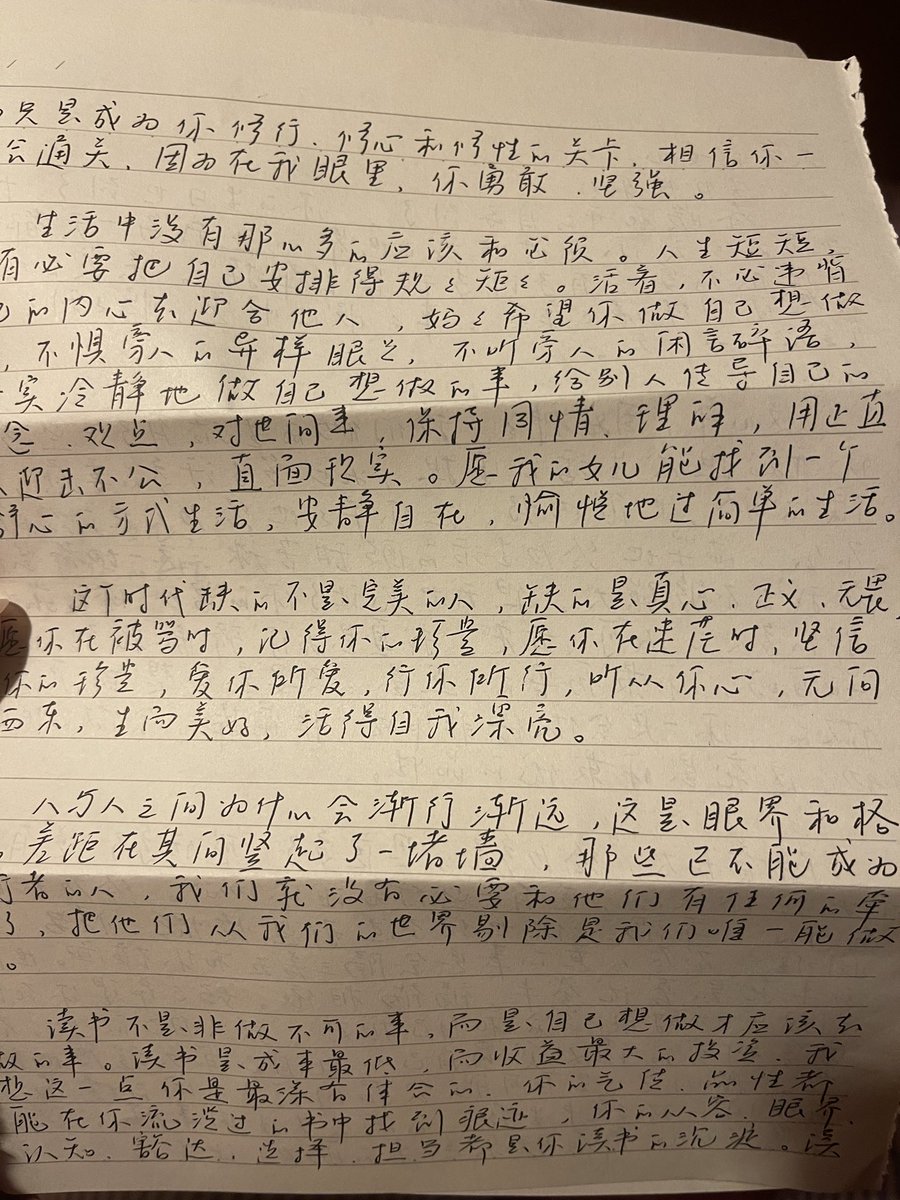 只是成为你修行、修心和修性的关卡，相信你一
会通关，因为在我眼里，你勇敢、坚强。
生活中没有那么多的应该和必须。人生短短，
有必要把自己安排得规々矩々。活着，不必违背
己的内心去迎合他人，妈々希望你做自己想做
，不惧旁人的异样眼光，不听旁人的闲言碎语，
实冷静地做自己想做的事，给别人传导自己的
念、观点，对世间事，保持同情、理解，用正直
迎击不公，直面现实。愿我的女儿能找到一个
心的方式生活，安静自在，愉悦地过简单的生活。
这个时代缺的不是完美的人，缺的是真心、正义、无畏
愿你在被骂时，记得你的珍贵，愿你在迷茫时，坚信
你的珍贵，爱你所爱，行你所行，听从你心，无问
西东，生而美好，活得自我漂亮。
人与人之间为什么会渐行渐远，这是眼界和格
差距在其间竖起了一堵墙，那些已不能成为
行者的人，我们就没有必要和他们有任何的牵
了，把他们从我们的世界剔除是我们唯一能做
。
读书不是非做不可的事，而是自己想做才应该去
做的事。读书是成本最低，而收益最大的投资，我
想这一点你是最深有体会的，你的气质、品性都
能在你流淌过的书中找到痕迹，你的从容、眼界、
认知、豁达、选择、担当都是你读书的沉淀。读